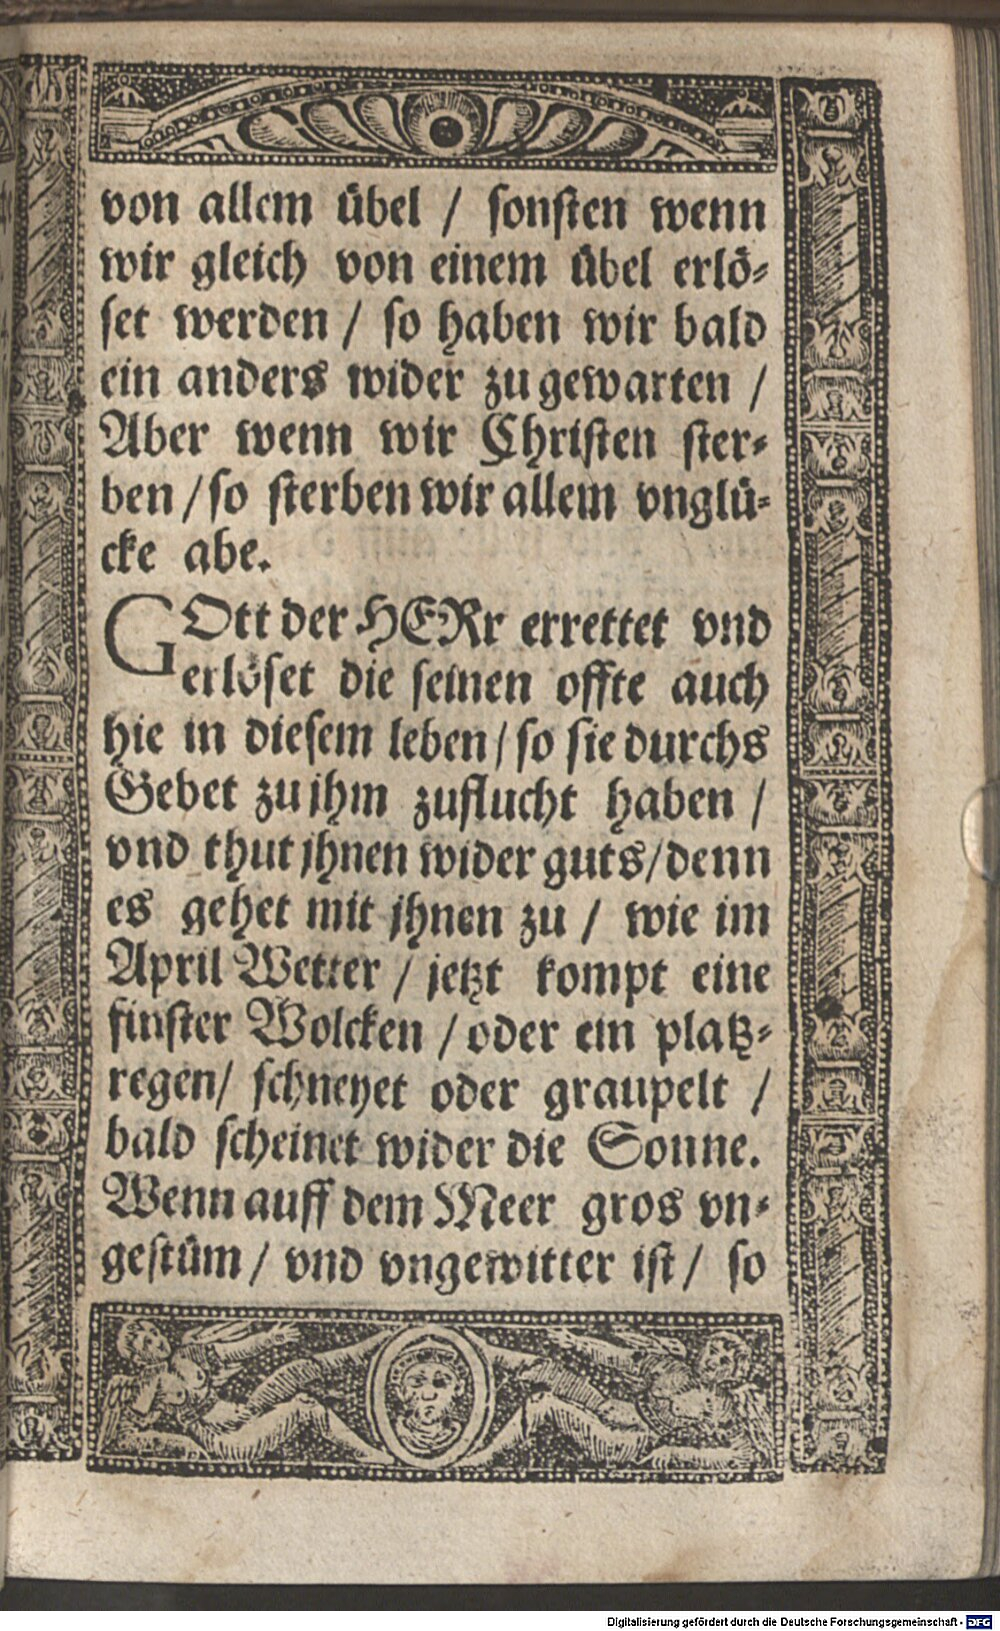 von allem übel / sonsten wenn
wir gleich von einem übel erlö⸗
set werden / so haben wir bald
ein anders wider zu gewarten /
Aber wenn wir Christen ster⸗
ben / so sterben wir allem vnglü⸗
cke abe.
GOtt der HERr errettet vnd
erlöset die seinen offte auch
hie in diesem leben / so sie durchs
Gebet zu jhm zuflucht haben /
vnd thut jhnen wider guts / denn
es gehet mit jhnen zu / wie im
April Wetter / jetzt kompt eine
finster Wolcken / oder ein platz⸗
regen / schneyet oder graupelt /
bald scheinet wider die Sonne.
Wenn auff dem Meer gros vn⸗
gestüm / vnd vngewitter ist / so
Digitalisierung gefördert durch die Deutsche Forschungsgemeinschaft - DFG